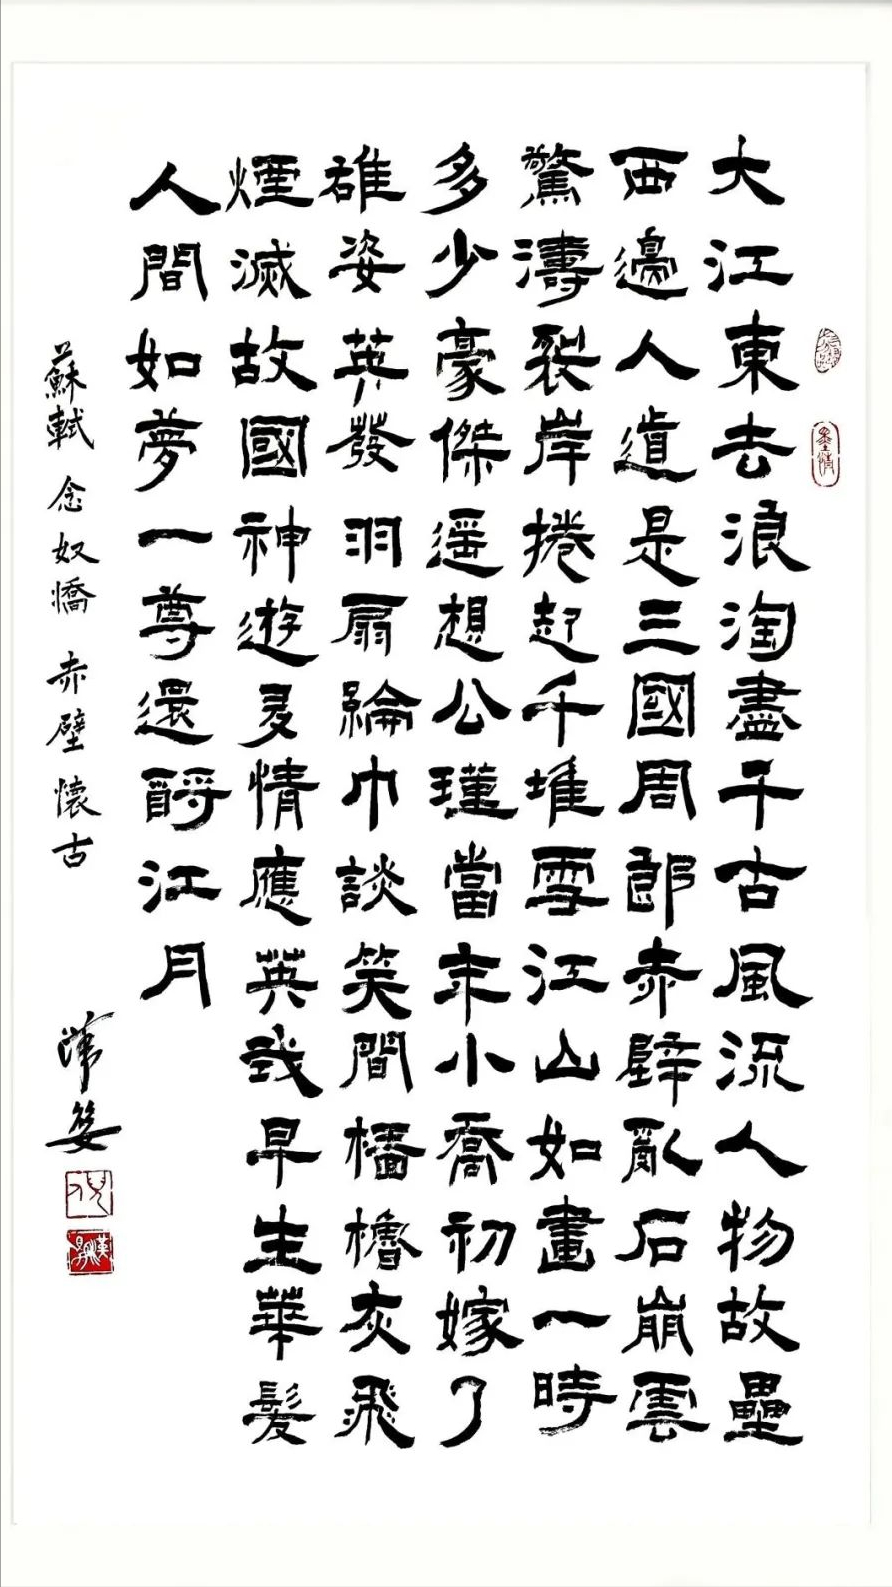 大江東去浪淘盡千古風流人物故壘
西邊人道是三國周郎赤壁亂石崩雲
驚濤裂岸捲起千堆雪江山如畫一時
多少豪傑遥想公瑾當年小喬初嫁了
雄姿英發羽扇綸巾談笑間檣櫓灰飛
煙滅故國神遊多情應英我早生華髮
人間如夢一尊還酹江月
蘇軾 念奴憍 赤壁懷古